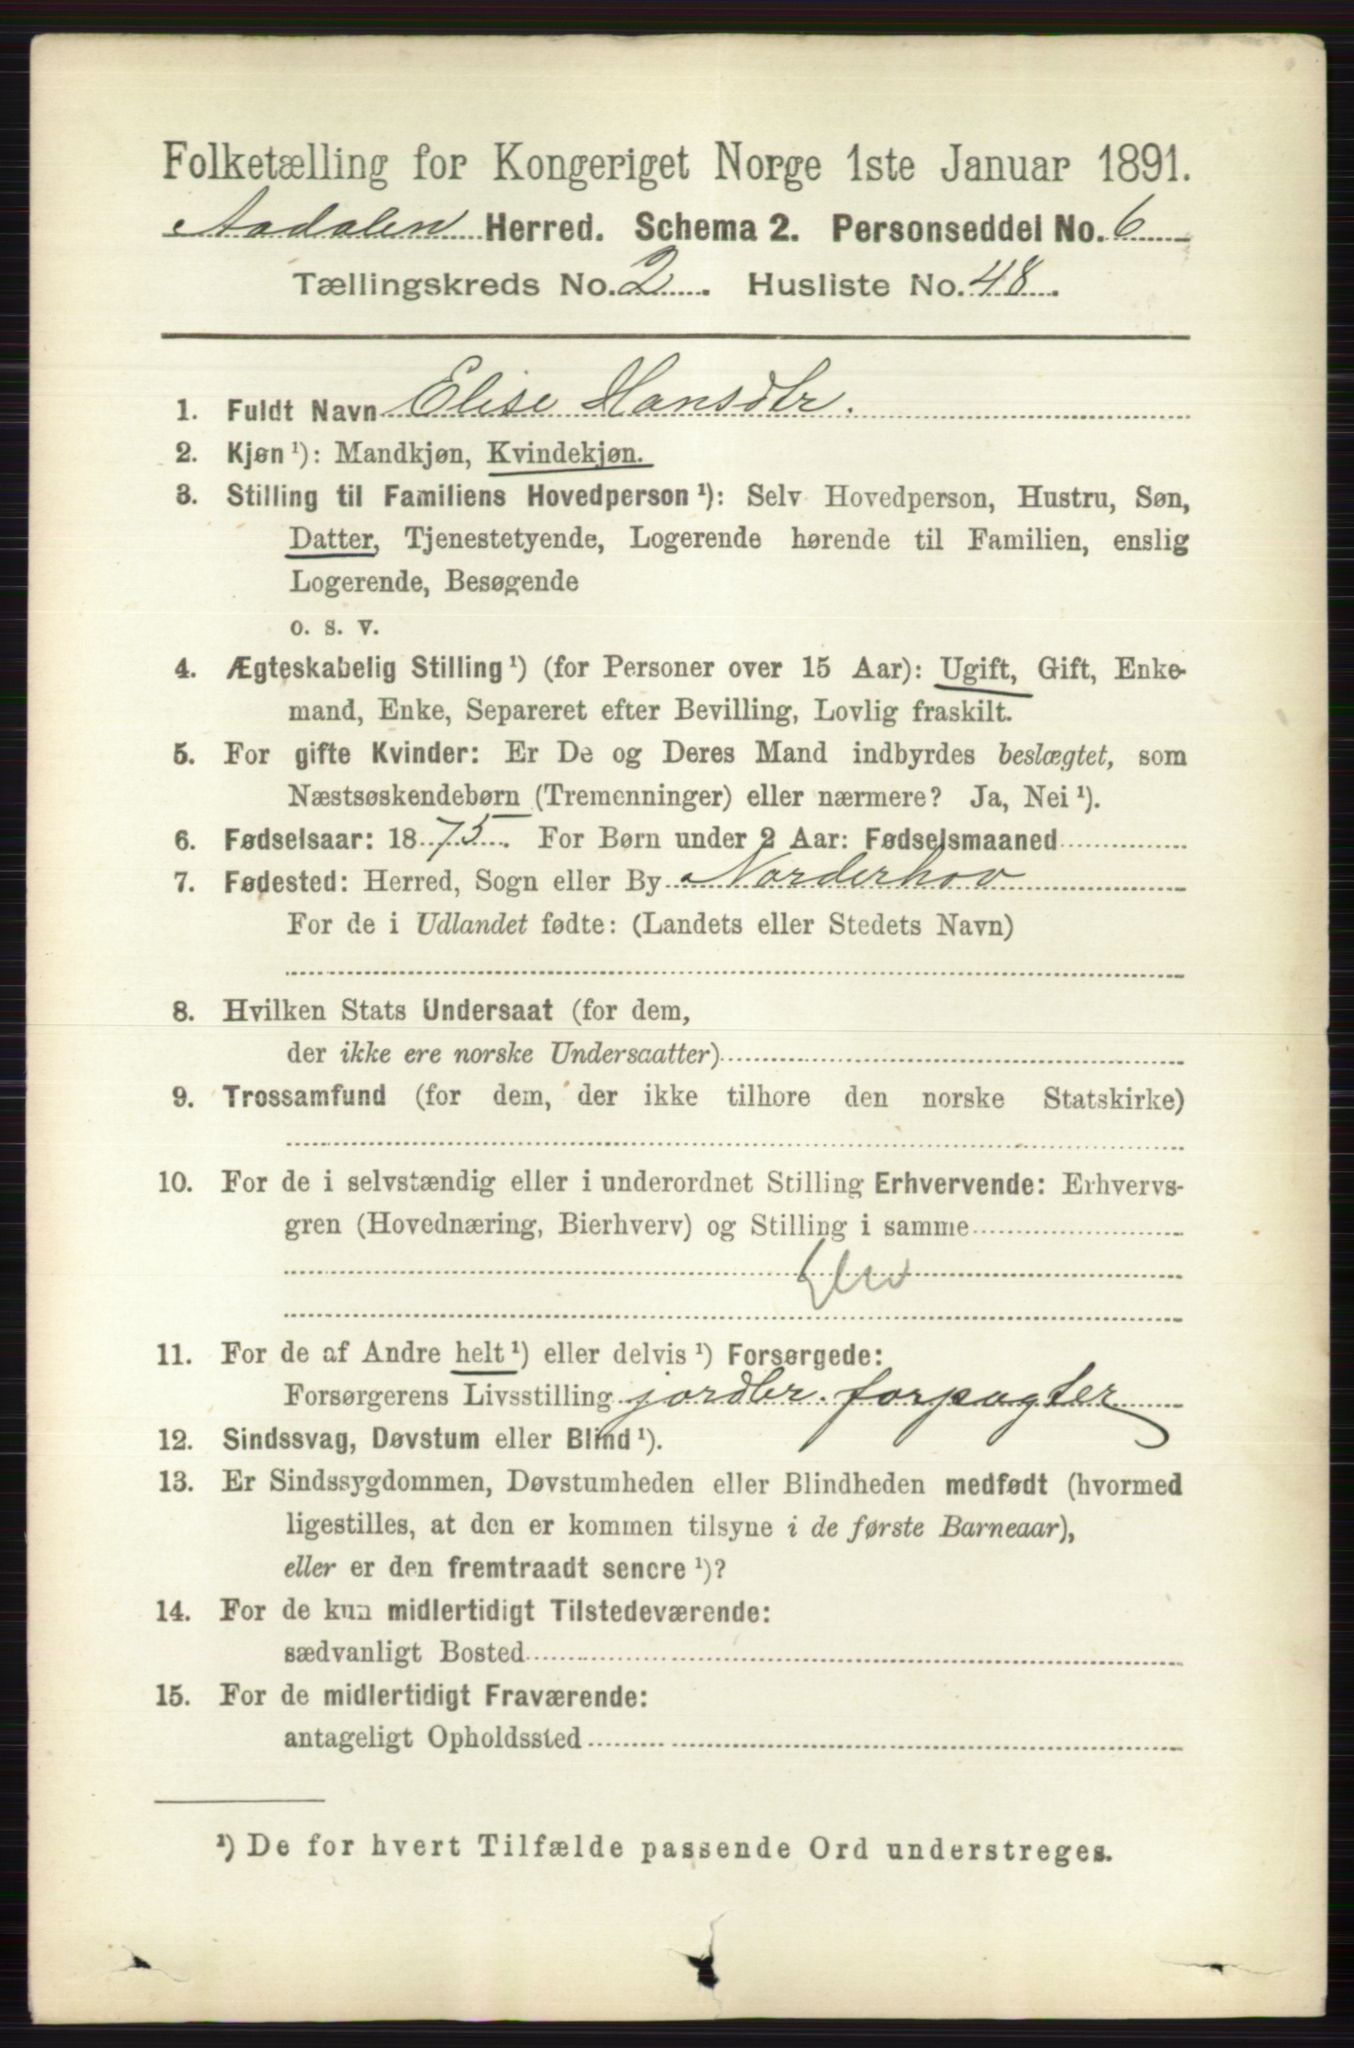 Folketælling for Kongeriget Norge 1ste Januar 1891.
Aadalen Herred. Schema 2. Personseddel No. 6
Tællingskreds No. 2. Husliste No. 48.
1. Fuldt Navn Elise Hansdtr.
2. Kjøn ¹): Mandkjøn, Kvindekjøn.
3. Stilling til Familiens Hovedperson ¹): Selv Hovedperson, Hustru, Søn,
Datter, Tjenestetyende, Logerende hørende til Familien, enslig
Logerende, Besøgende
o. s. v.
4. Ægteskabelig Stilling ¹) (for Personer over 15 Aar): Ugift, Gift, Enke-
mand, Enke, Separeret efter Bevilling, Lovlig fraskilt.
5. For gifte Kvinder: Er De og Deres Mand indbyrdes beslægtet, som
Næstsøskendebørn (Tremenninger) eller nærmere? Ja, Nei ¹).
6. Fødselsaar: 1875. For Børn under 2 Aar: Fødselsmaaned
7. Fødested: Herred, Sogn eller By Norderhov
For de i Udlandet fødte: (Landets eller Stedets Navn)
8. Hvilken Stats Undersaat (for dem,
der ikke ere norske Undersaatter)
9. Trossamfund (for dem, der ikke tilhøre den norske Statskirke)
10. For de i selvstændig eller i underordnet Stilling Erhvervende: Erhvervs-
gren (Hovednæring, Bierhverv) og Stilling i samme
11. For de af Andre helt ¹) eller delvis ¹) Forsørgede:
Forsørgerens Livsstilling jordbr. forpagter
12. Sindssvag, Døvstum eller Blind ¹).
13. Er Sindssygdommen, Døvstumheden eller Blindheden medfødt (hvormed
ligestilles, at den er kommen tilsyne i de første Barneaar),
eller er den fremtraadt senere ¹)?
14. For de kun midlertidigt Tilstedeværende:
sædvanligt Bosted
15. For de midlertidigt Fraværende:
antageligt Opholdssted
¹) De for hvert Tilfælde passende Ord understreges.